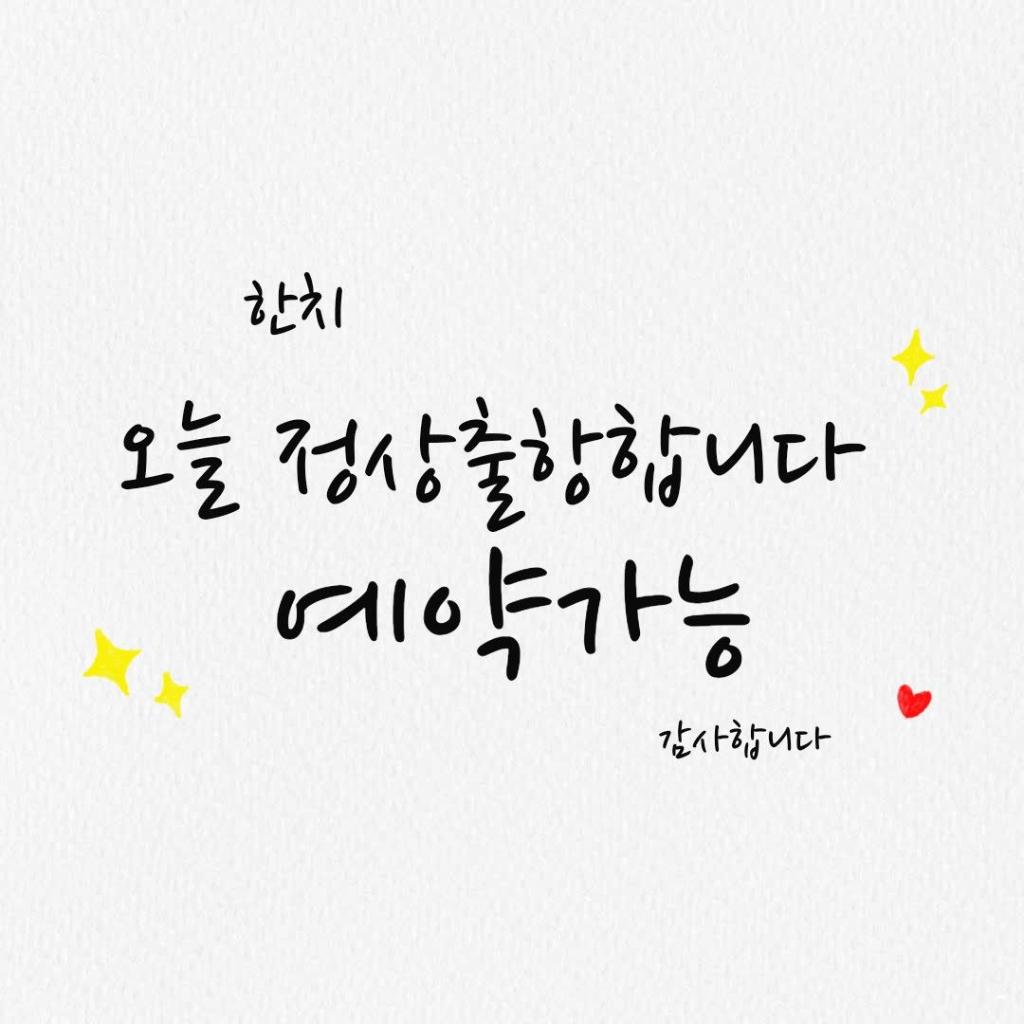 한치
오늘 정상출항합니다
예약가능
감사합니다